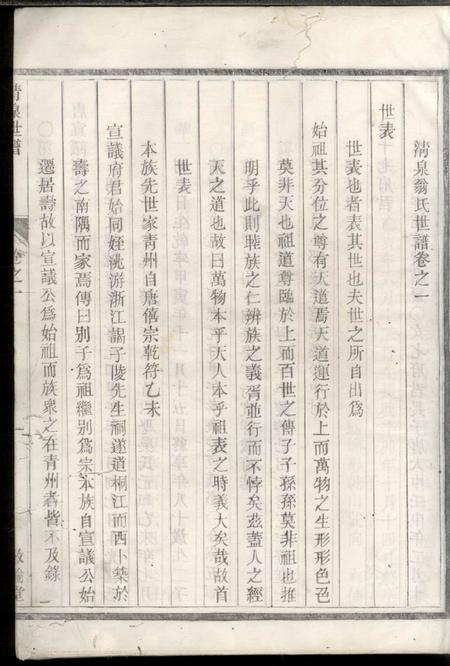 清泉翁氏世譜卷之一
世表
世表也者表其世也夫世之所自出爲
始祖其分位之尊有天道焉天道運行於上而萬物之生形形色色
莫非天也祖道尊臨於上而百世之傳子子孫孫莫非祖也推
明乎此則睦族之仁辨族之義胥並行而不悖矣茲蓋人之經
天之道也故曰萬物本乎天人本乎祖表之時義大矣哉故首
世表
本族先世家靑州自唐僖宗乾符乙未
宣議府君始同姪洮游浙江謁子陵先生祠遂道桐江而西卜築於
壽之南隅而家焉傳曰別子爲祖繼別爲宗本族自宣議公始
遷居壽故以宣議公爲始祖而族衆之在靑州者皆不及錄
清泉世譜
卷之一